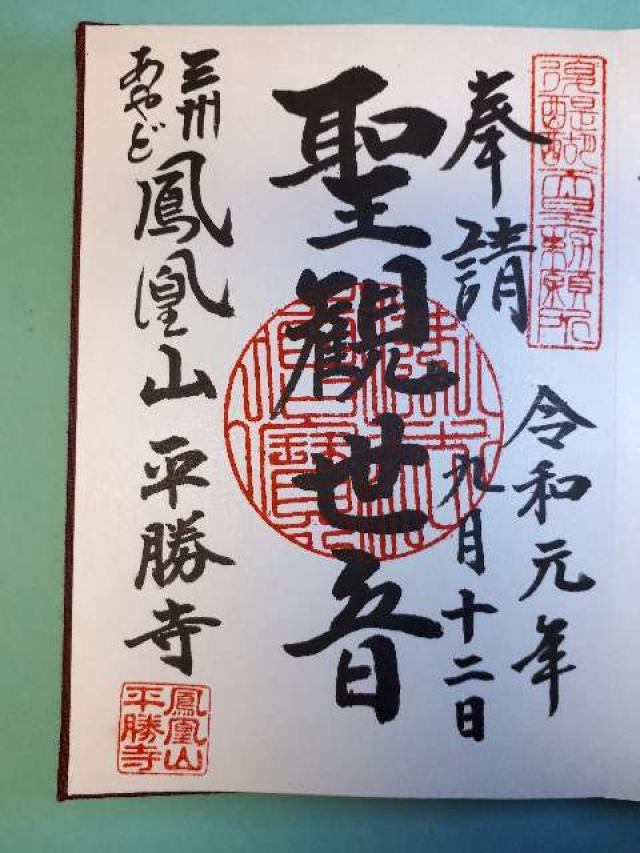 後醍醐天皇勅願所
奉請
令和元年
九月十二日
聖観世音
三州
あやど
鳳凰山平勝寺
鳳凰山
平勝寺